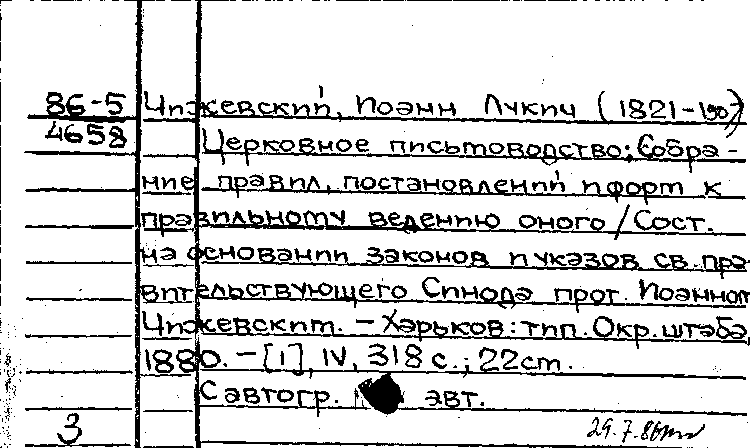 86-5 Чижевский, Иоанн Лукич (1821-1907)
4658 Церковное письмоводство: Собра-
ние правил, постановлений и форм к
правильному ведению оного / Сост.
на основании законов и указов св. пра-
вительствующего Синода прот. Иоанном
Чижевским. – Харьков: тип. Окр. штаба,
1880. – [1], IV, 318 с.; 22 см.
С автогр. авт.
3 29.7.86